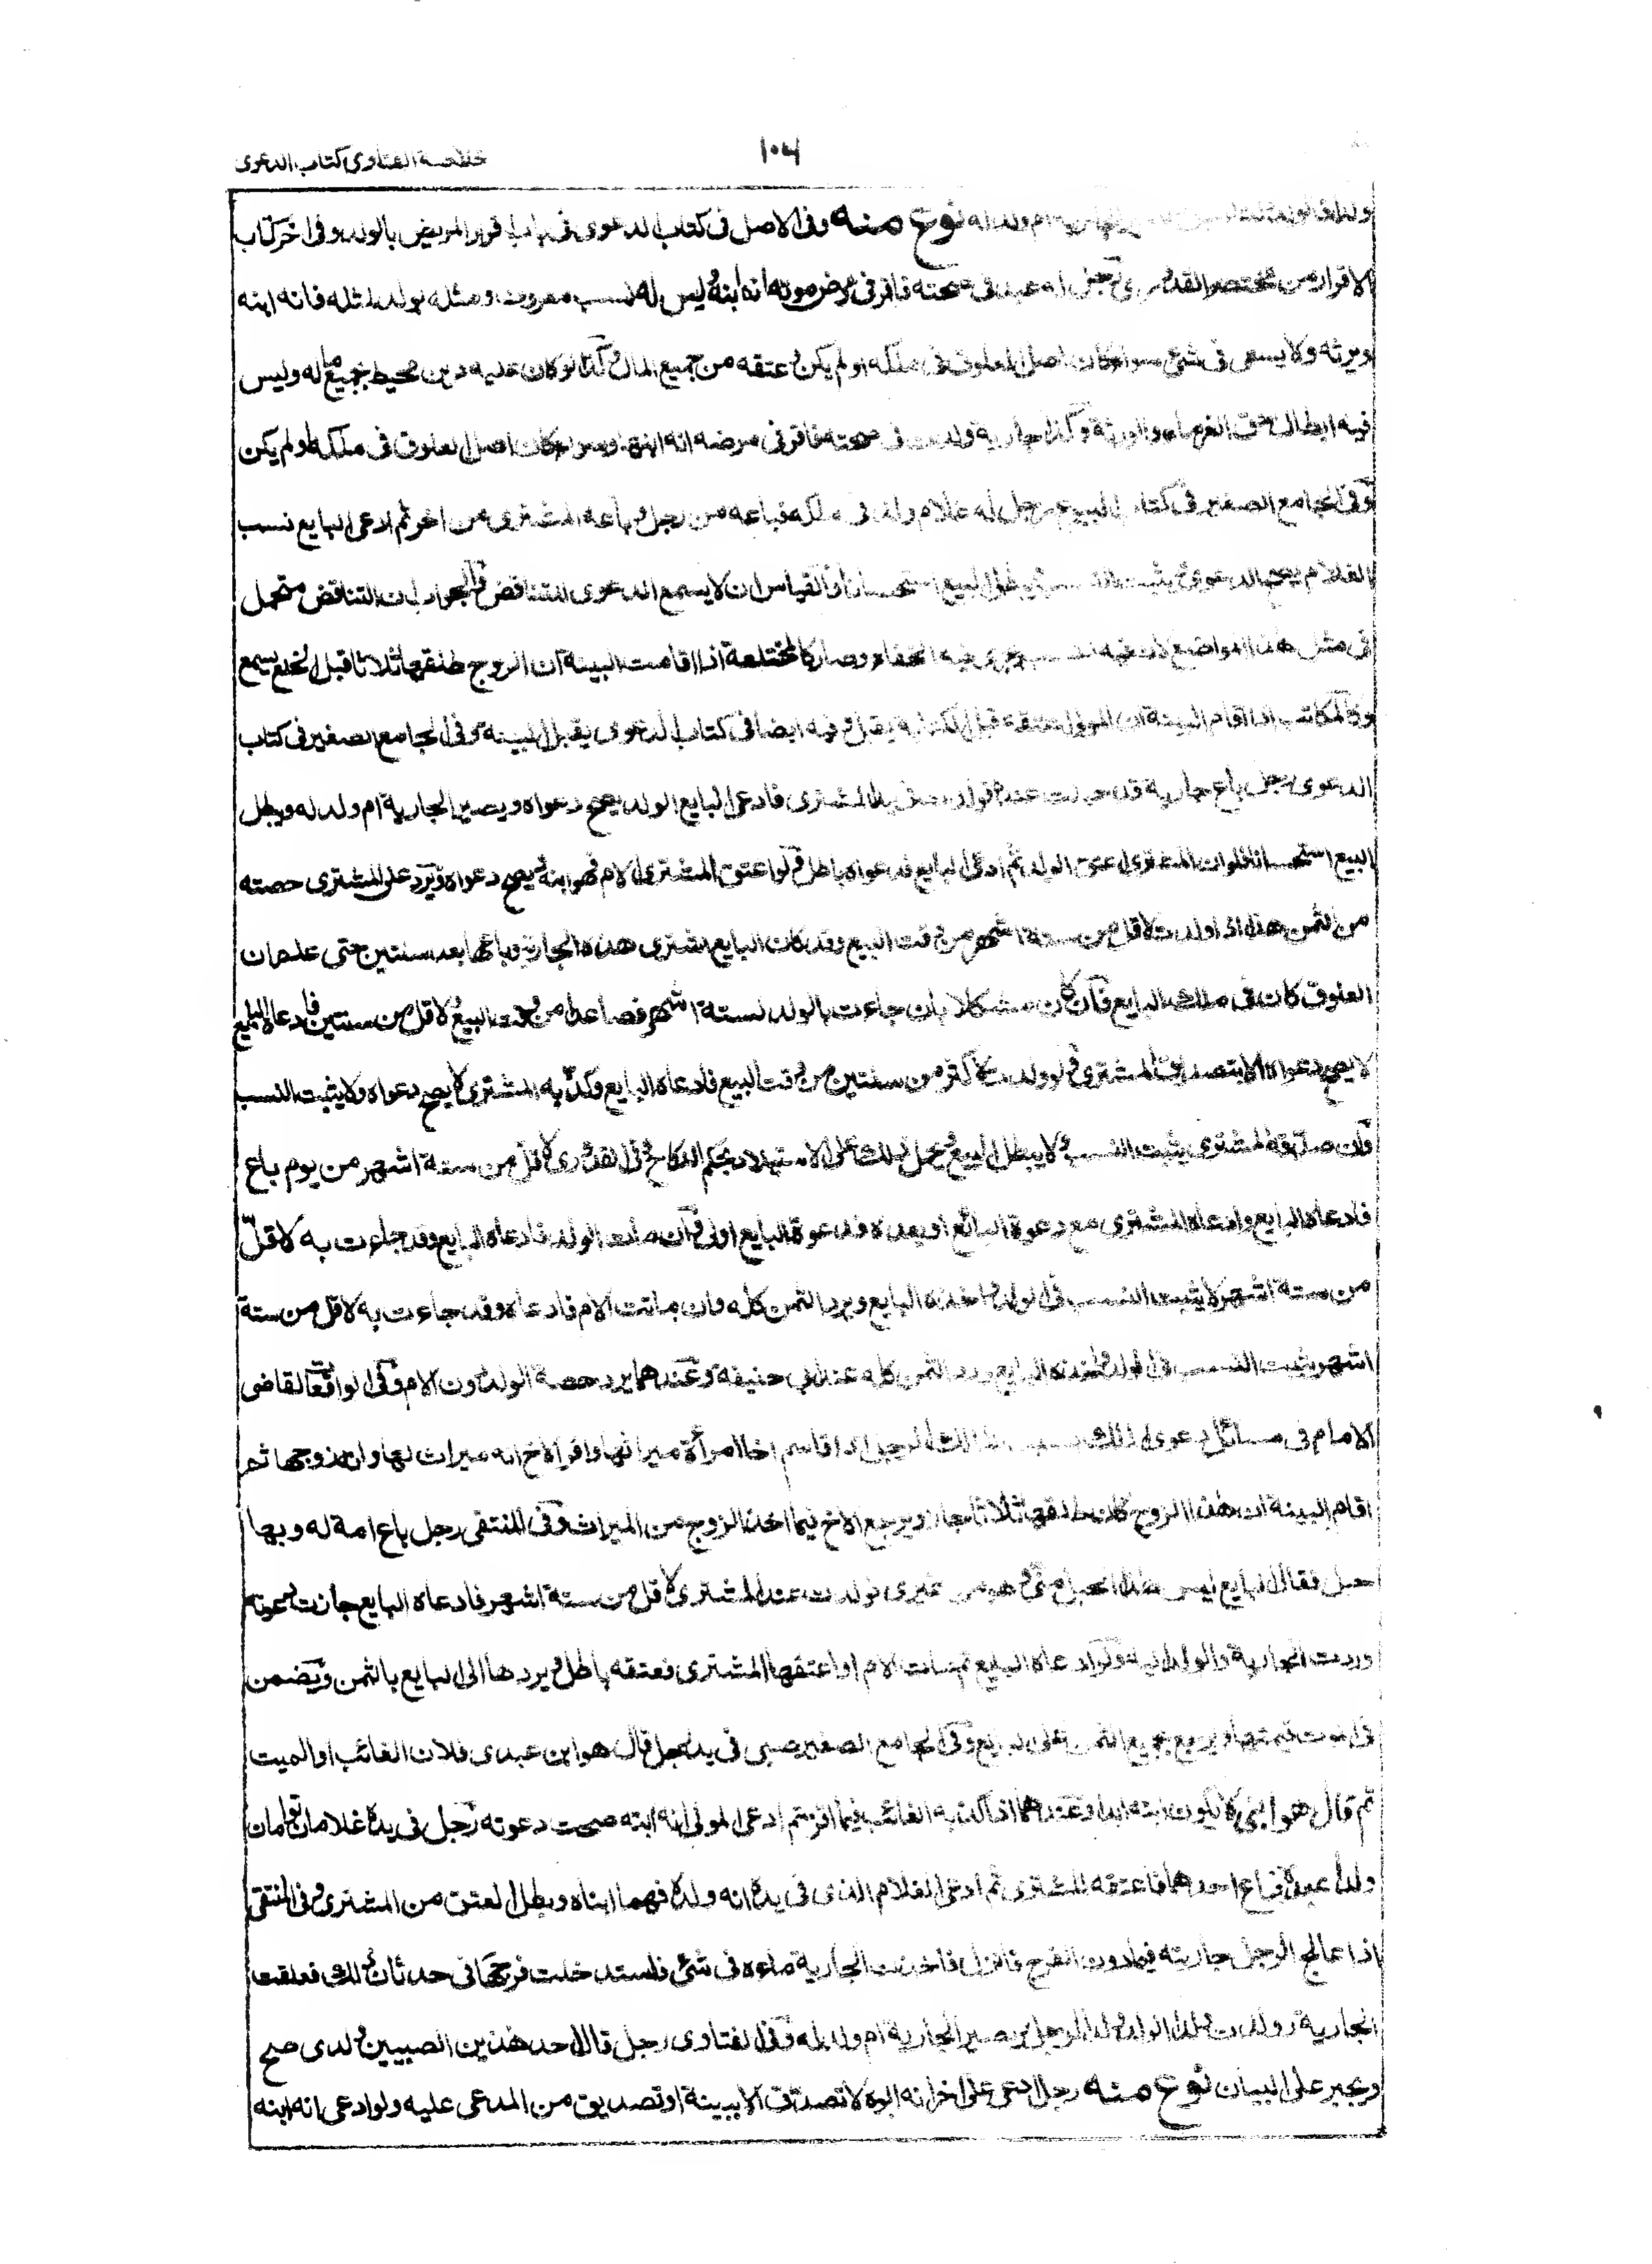 خلاصة الفتاوى كتاب الدعوى
ام ولد له نوع منه وفى الاصل فى كتاب الدعوى فى باب اقرار المريض بالولد وفى اخر كتاب
الاقرار من مختصر القدورى رجل له عبد فى صحته فاقر فى مرض موته انه ابنه وليس له نسب معروف ومثله يولد لمثله فانه ابنه
ويرثه ولا يسعى فى شئ سواء كان اصل العلوق فى ملكه او لم يكن وعتقه من جميع المال وكذا لو كان عليه دين محيط بجميع ماله وليس
فيه ابطال حق الغرماء والورثة وكذا جارية ولدت فى صحته فاقر فى مرضه انه ابنها وسواء كان اصل العلوق فى ملكه او لم يكن
وفى الجامع الصغير فى كتاب البيوع رجل له غلام ولد فى ملكه فباعه من رجل وباعه المشترى من اخر ثم ادعى البايع نسب
الغلام يصح الدعوى ويثبت النسب ويبطل البيع استحسانا والقياس ان لا يسمع الدعوى للتناقض والجواب ان التناقض متحمل
فى مثل هذا المواضع لان فيه نسب يجرى فيه الخفاء وصار كالمختلعة اذا اقامت البينة ان الزوج طلقها ثلاثا قبل الخلع يسمع
وكالمكاتب اذا اقام البينة ان المولى اعتقه قبل الكتابة يقبل وفيه ايضا فى كتاب الدعوى يقبل البينة وفى الجامع الصغير فى كتاب
الدعوى رجل باع جارية قد حبلت عنده فولدت فى يد المشترى فادعى البايع الولد يصح دعواه ويصير الجارية ام ولد له ويبطل
البيع استحسانا فلو ان المشترى اعتق الولد ثم ادعى البايع فدعواه باطل ولو اعتق المشترى الام فهو ابنه يصح دعواه ويرد على المشترى حصته
من الثمن هذا اذا ولدت لاقل من ستة اشهر من وقت البيع وقد كان البايع اشترى هذه الجارية وباعها بعد سنتين حتى علم ان
العلوق كان فى ملك البايع فان كان مشكلا بان جاءت بالولد لستة اشهر فصاعدا من وقت البيع ولاقل من سنتين فادعاه البايع
لا يصح دعواه الا بتصديق المشترى ولو ولدت لاكثر من سنتين من وقت البيع فادعاه البايع وكذبه المشترى لا يصح دعواه ولا يثبت النسب
وان صدقه المشترى يثبت النسب ولا يبطل البيع ويحمل ذلك على الاستيلاد بحكم النكاح وفى القدورى لاقل من ستة اشهر من يوم باع
فادعاه البايع وادعاه المشترى مع دعوة البائع او بعده فدعوة البايع اولى وان مات الولد فادعاه البايع وقد جاءت به لاقل
من ستة اشهر لا يثبت النسب فى الولد واخذه البايع ويرد الثمن كله وان ماتت الام فادعاه وقد جاءت به لاقل من ستة
اشهر يثبت النسب فى الولد واخذه البايع ورد الثمن كله عند ابى حنيفة وعندهما يرد حصة الولد دون الام وفى الواقعات القاضى
الامام فى مسائل دعوى الملك بسبب الرجل اذا قاسم اخا امرأة ميراثها واقر الاخ انه ميراث لها وان زوجها ثم
اقام البينة ان هذا الزوج كان طلقها ثلاثا جاز ويرجع الاخ فيما اخذ الزوج من الميراث وفى المنتقى رجل باع امة له وبها
حبل فقال البايع ليس هذا الحبل منى وهو من غيرى فولدت عند المشترى لاقل من ستة اشهر فادعاه البايع جازت دعوته
وردت الجارية والولد اليه ولو ادعاه البايع ثم ماتت الام او اعتقها المشترى فعتقه باطل ويردها الى البايع بالثمن ويضمن
فى الموت قيمتها ويرجع بجميع الثمن على البايع وفى الجامع الصغير صبى فى يد رجل قال هو ابن عبدى فلان الغائب او الميت
ثم قال هو ابنى لا يكون ابنه ابدا وعندهما اذا كذبه الغائب فيما اقر ثم ادعى المولى انه ابنه صحت دعوته رجل فى يده غلامان توامان
ولدا عنده فباع احدهما فاعتقه المشترى ثم ادعى الغلام الذى فى يده انه ولده فهما ابناه وبطل العتق من المشترى وفى المنتقى
اذا عالج الرجل جاريته فيما دون الفرج فانزل فاخذت الجارية ماءه فى شئ فاستدخلت فرجها فى حدثان ذلك فعلقت
الجارية وولدت فهذا الولد ولد الرجل يصير الجارية ام ولد له وفى الفتاوى رجل قال احد هذين الصبيين ولدى صح
ويجبر على البيان نوع منه رجل ادعى على اخر انه ابوه لا تصدق الا ببينة او تصديق من المدعى عليه ولو ادعى انه ابنه